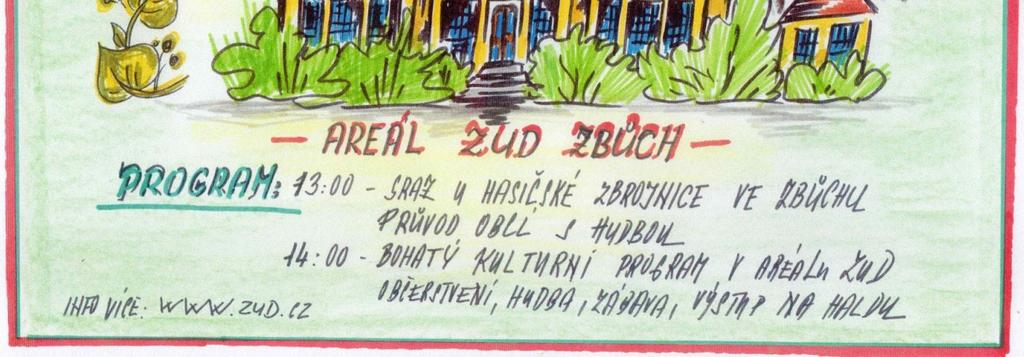 — AREÁL ZUD ZBŮCH —
PROGRAM: 13:00 - SRAZ U HASIČSKÉ ZBROJNICE VE ZBŮCHU
PRŮVOD OBCÍ S HUDBOU
14:00 - BOHATÝ KULTURNÍ PROGRAM V AREÁLU ZUD
OBČERSTVENÍ, HUDBA, ZÁBAVA, VÝSTUP NA HALDU
INFO VÍCE: WWW.ZUD.CZ